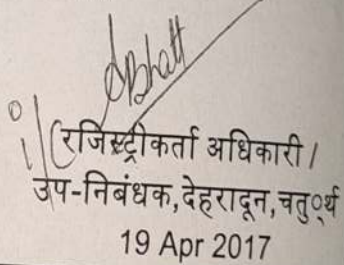 रजिस्ट्रीकर्ता अधिकारी /
उप-निबंधक,देहरादून,चतुर्थ
19 Apr 2017